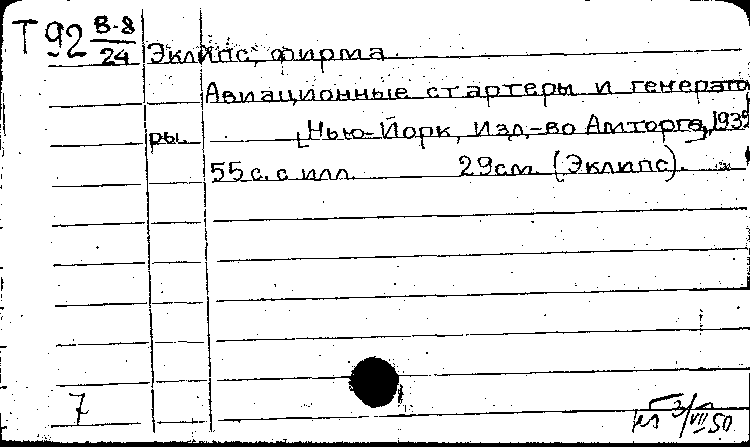 Т 92 В-8/24
Эклипс, фирма.
Авиационные стартеры и генерато
ры. [Нью-Йорк, Изд-во Амторга,
55 с. с илл. 29см. (Эклипс).
7
3/VII 50